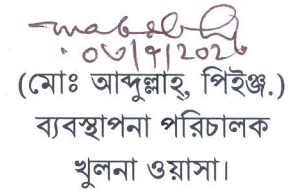 (মোঃ আব্দুল্লাহ্, পিইঞ্জ.)
ব্যবস্থাপনা পরিচালক
খুলনা ওয়াসা।